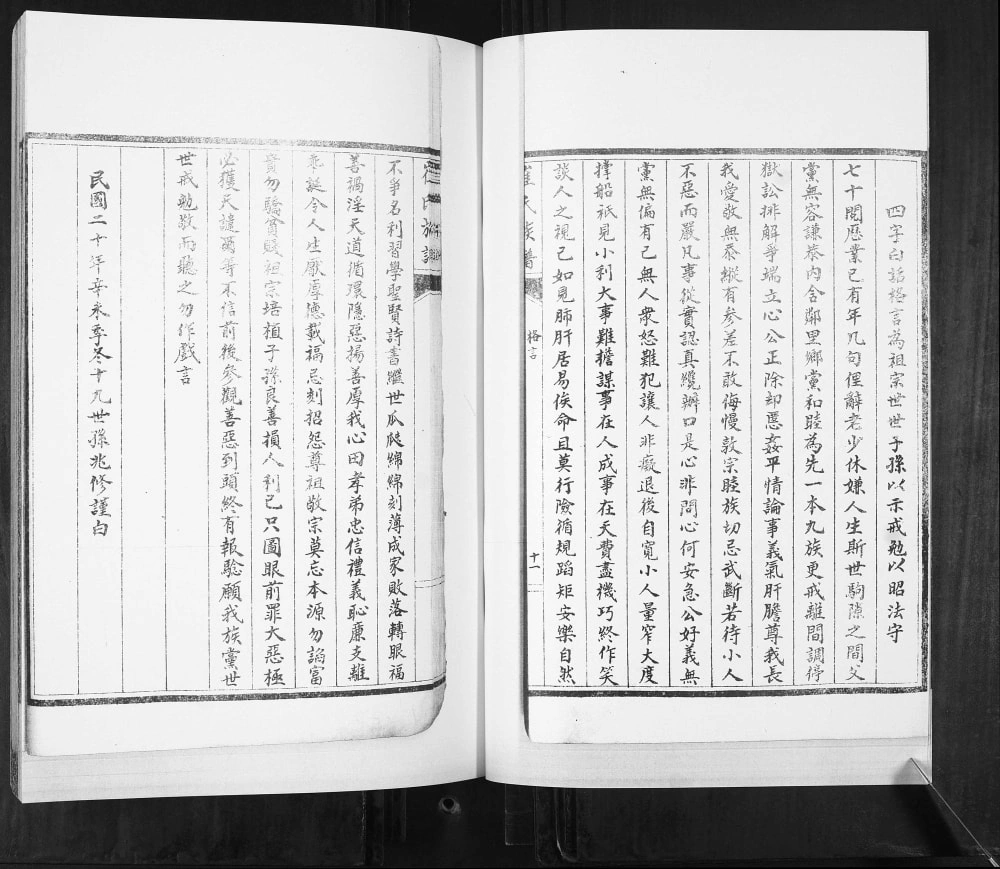 四字白話格言為祖宗世世子孫以示戒勉以昭法守
七十閱歷業已有年凡句俚辭老少休嫌人生斯世駒隙之間父
黨無容謙恭內含鄰里鄉黨和睦為先一本九族更戒離間調停
獄訟排解爭端立心公正除却惡姦平情論事義氣肝膽尊我長
我愛敬無忝縱有參差不敢侮慢敦宗睦族切忌武斷若待小人
不惡而嚴凡事從實認真纔辦口是心非問心何安急公好義無
黨無偏有己無人衆怒難犯讓人非癡退後自寬小人量窄大度
撐船祇見小利大事難擔謀事在人成事在天費盡機巧終作笑
談人之視己如見肺肝居易俟命且莫行險循規蹈矩安樂自然
崔氏族譜
格言
十一
不爭名利習學聖賢詩書繼世瓜瓞綿綿刻薄成家敗落轉眼福
善禍淫天道循環隱惡揚善厚我心田孝弟忠信禮義恥廉支離
乖誕令人生厭厚德載福忌刻招怨尊祖敬宗莫忘本源勿諂富
貴勿驕貧賤祖宗培植子孫良善損人利己只圖眼前罪大惡極
必獲天譴爾等不信前後參觀善惡到頭終有報驗願我族黨世
世戒勉敬而聽之勿作戲言
民國二十年辛未季冬十九世孫兆修謹白